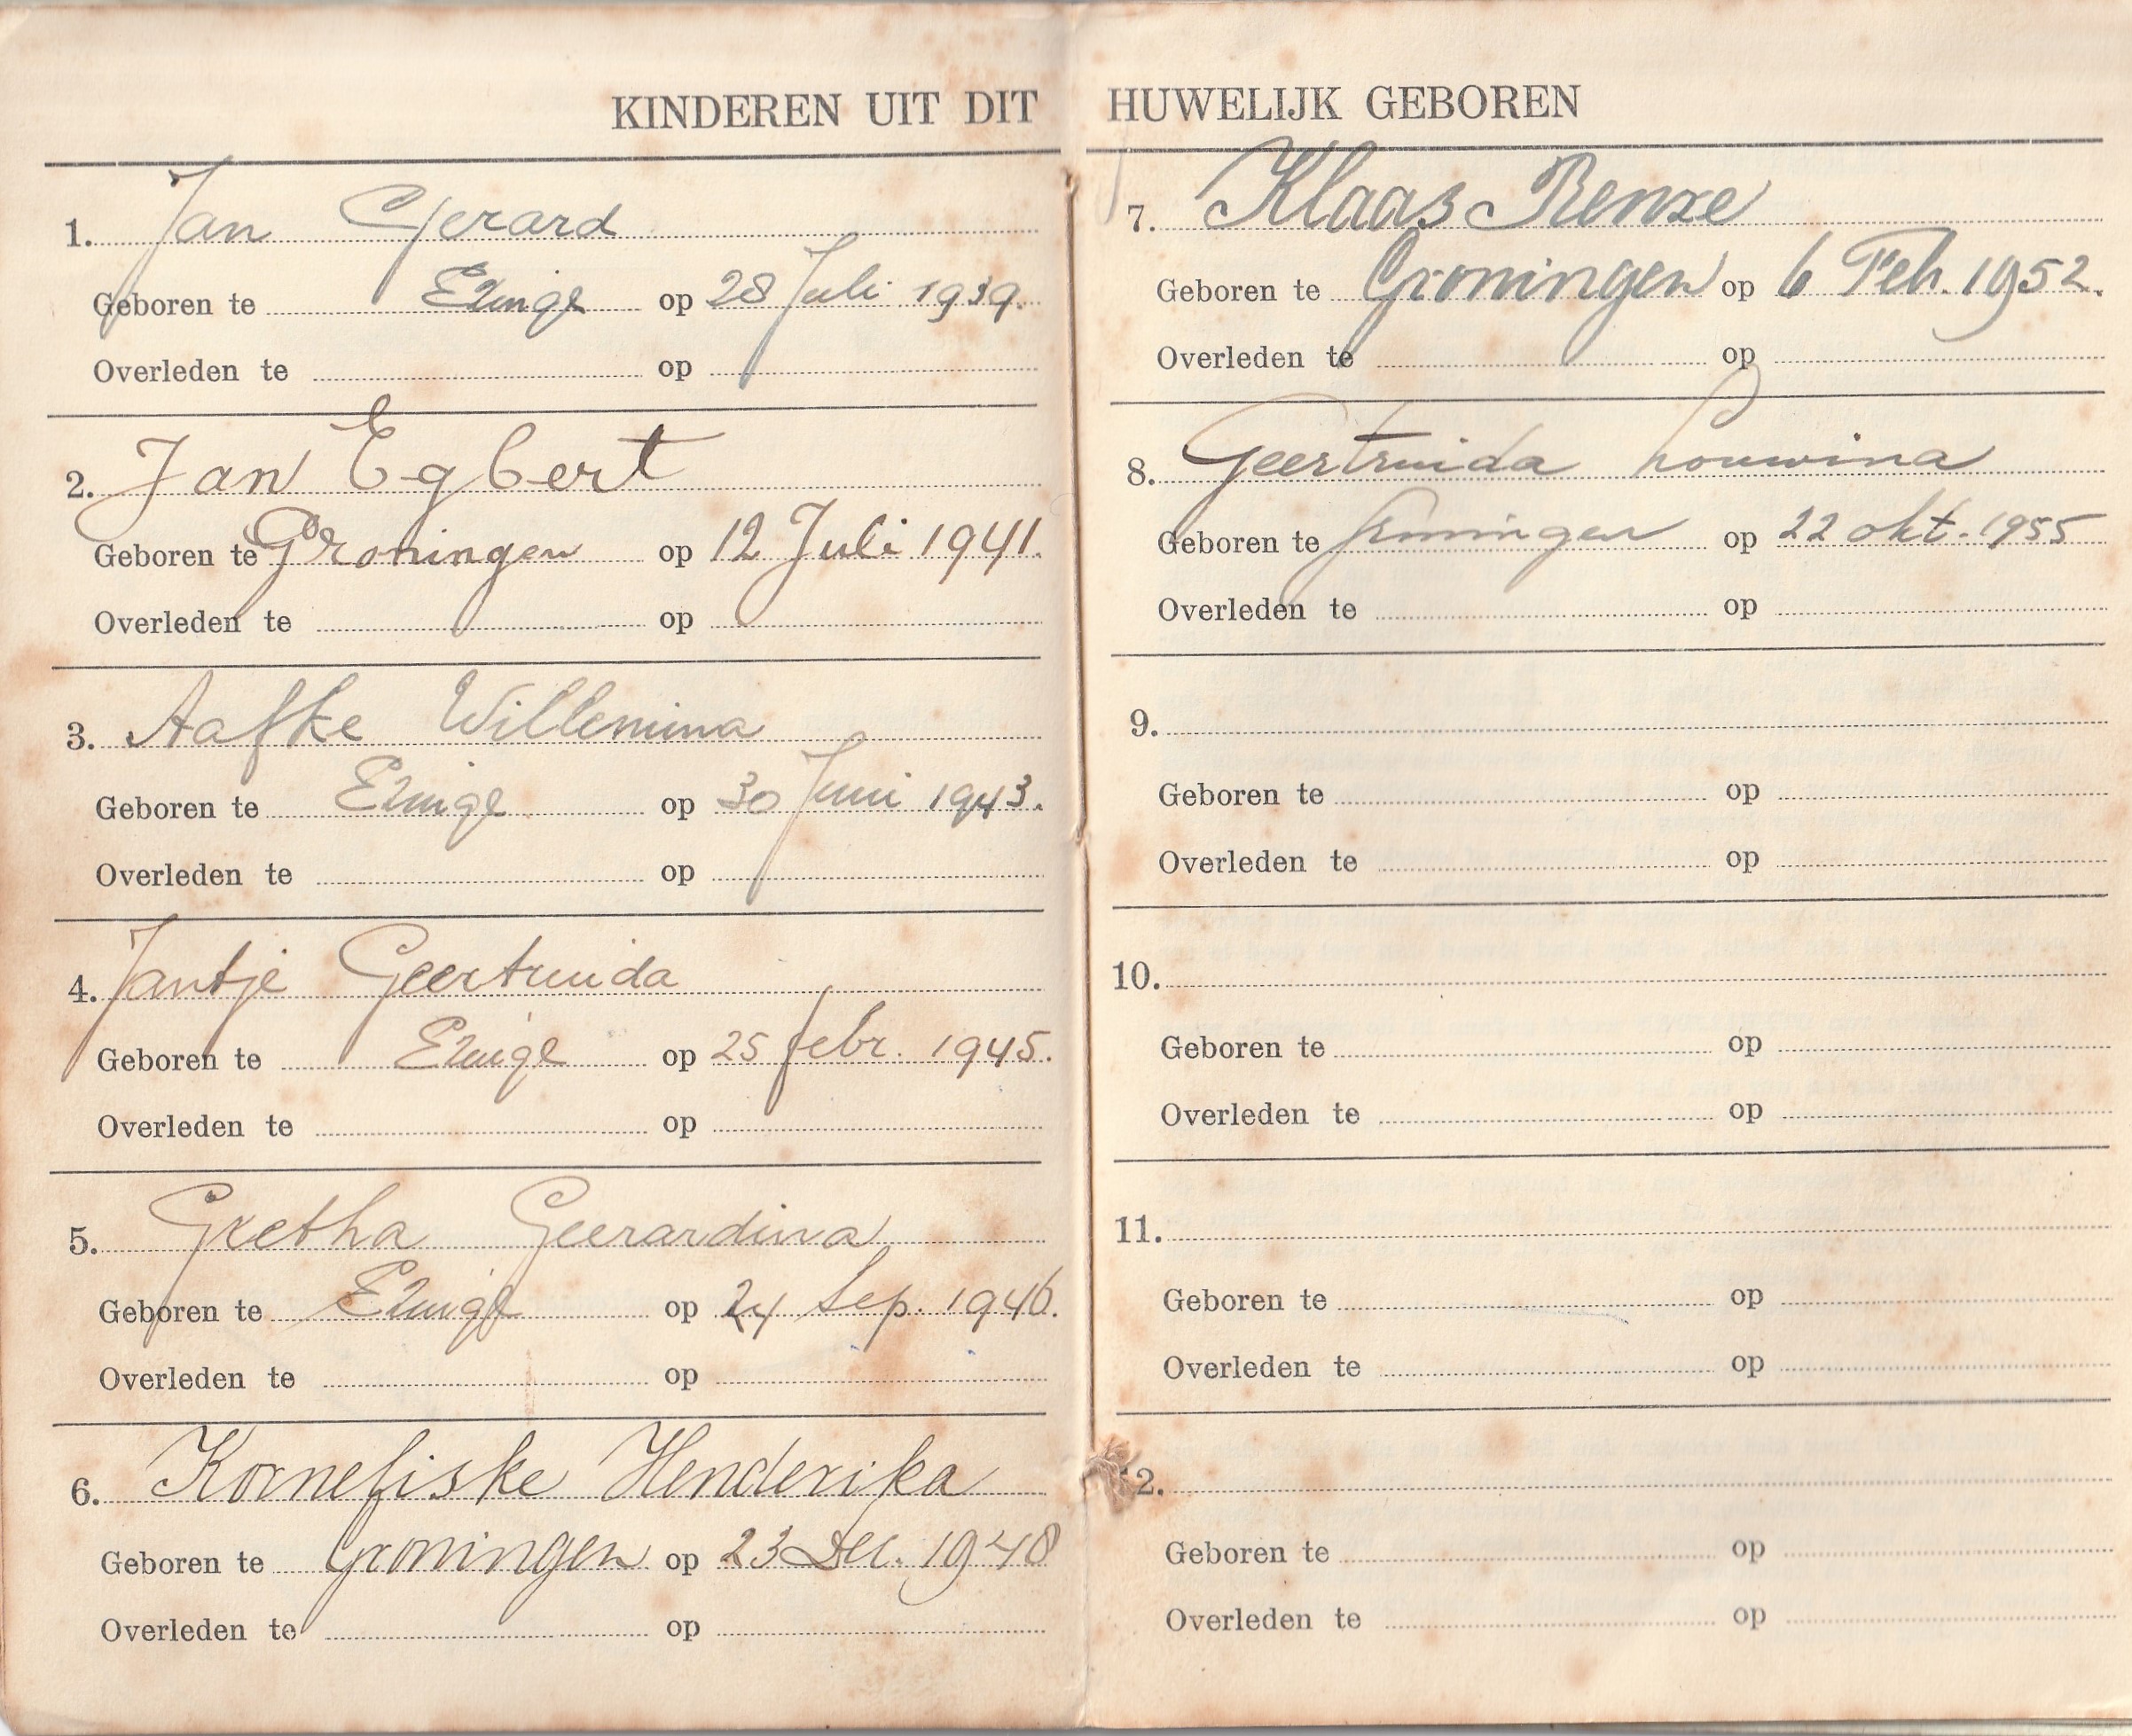 KINDEREN UIT DIT HUWELIJK GEBOREN
1. Jan Gerard
Geboren te Ezinge op 28 Juli 1939.
Overleden te op
2. Jan Egbert
Geboren te Groningen op 12 Juli 1941.
Overleden te op
3. Aafke Willemina
Geboren te Ezinge op 30 Juni 1943.
Overleden te op
4. Jantje Geertruida
Geboren te Ezinge op 25 febr. 1945.
Overleden te op
5. Gretha Geerardina
Geboren te Ezinge op 24 Sep. 1946.
Overleden te op
6. Korneliske Henderika
Geboren te Groningen op 23 Dec. 1948
Overleden te op
7. Klaas Renze
Geboren te Groningen op 6 Feb. 1952.
Overleden te op
8. Geertruida Louwina
Geboren te Groningen op 22 okt. 1955
Overleden te op
9.
Geboren te op
Overleden te op
10.
Geboren te op
Overleden te op
11.
Geboren te op
Overleden te op
12.
Geboren te op
Overleden te op